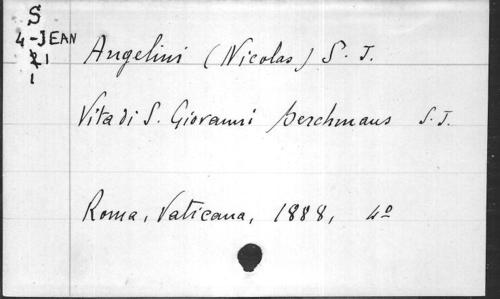 S
4-JEAN
1
1
Angelini (Nicolas) S. J.
Vita di S. Giovanni Berchmans S. J.
Roma, Vaticana, 1888, 4º